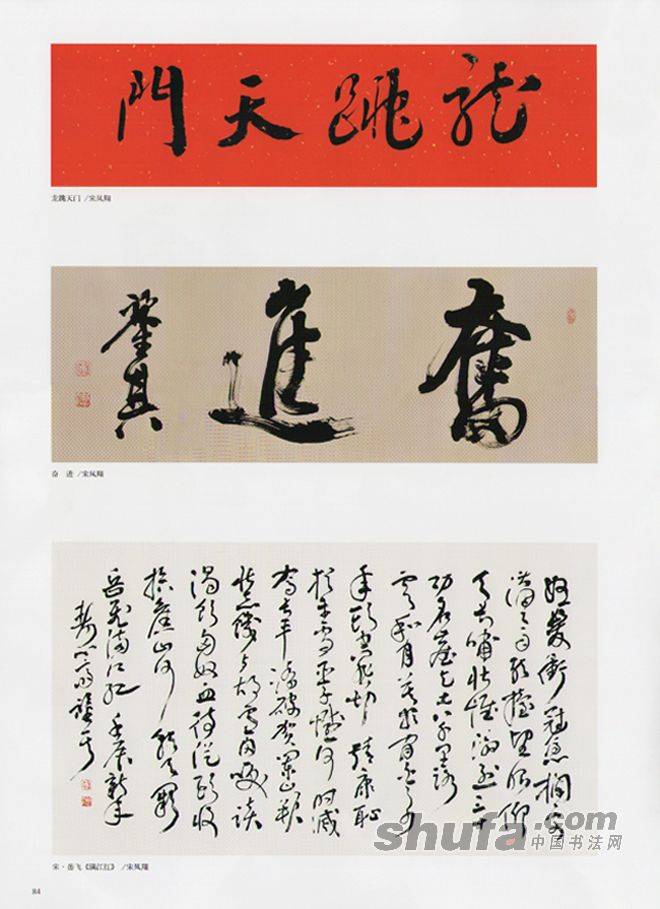 龍跳天門
龙跳天门 /宋凤翔
奮進
奋 进 /宋凤翔
怒髮衝冠憑欄處
瀟瀟雨歇擡望眼仰
天長嘯壯懷激烈三十
功名塵與土八千里路
雲和月莫等閒白了少
年頭空悲切 靖康恥
猶未雪臣子恨何時滅
駕長車踏破賀蘭山缺
壯志饑餐胡虜肉笑談
渴飲匈奴血待從頭收
拾舊山河 朝天闕
岳飛滿江紅 壬辰新年
shufa.com
中国书法网
宋·岳飞《满江红》 /宋凤翔
84